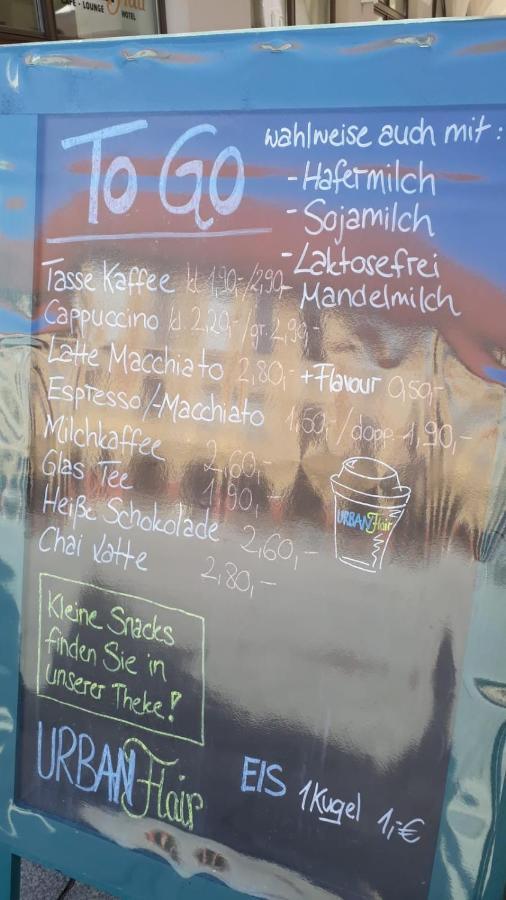 CAFE · LOUNGE
HOTEL
To Go
wahlweise auch mit:
- Hafermilch
- Sojamilch
- Laktosefrei
Mandelmilch
Tasse Kaffee kl. 1,90,-/2,90-
Cappuccino kl. 2,20,-/gr. 2,90,-
Latte Macchiato 2,80,- + Flavour 0,50,-
Espresso/-Macchiato 1,50,-/dopp. 1,90,-
Milchkaffee 2,60,-
Glas Tee 1,90,-
Heiße Schokolade 2,60,-
Chai Latte 2,80,-
URBAN Flair
Kleine Snacks
finden Sie in
unserer Theke!
URBAN Flair
EIS 1 Kugel 1,-€